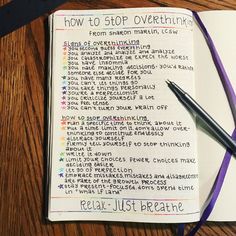 HOW TO STOP OVERTHINKING
FROM SHARON MARTIN, LCSW
SIGNS OF OVERTHINKING
YOU SECOND GUESS EVERYTHING
YOU ANALYZE AND ANALYZE AND ANALYZE
YOU CATASTROPHIZE OR EXPECT THE WORST
YOU HAVE INSOMNIA
YOU HATE MAKING DECISIONS- YOU'D RATHER
SOMEONE ELSE DECIDE FOR YOU
YOU HAVE MANY REGRETS
YOU CAN'T LET THINGS GO
YOU TAKE THINGS PERSONALLY
YOU'RE A PERFECTIONIST
YOU CRITICIZE YOURSELF A LOT
YOU FEEL TENSE
YOU CAN'T TURN YOUR BRAIN OFF
HOW TO STOP OVERTHINKING
PLAN A SPECIFIC TIME TO THINK ABOUT IT
PUT A TIME LIMIT ON IT- DON'T ALLOW OVER-
THINKING TO CONSUME ENDLESS
DISTRACT YOURSELF
FIRMLY TELL YOURSELF TO STOP THINKING
ABOUT IT
WRITE IT DOWN
LIMIT YOUR CHOICES. FEWER CHOICES MAKE
DECIDING EASIER
LET GO OF PERFECTION
EMBRACE MISTAKES. MISTAKES AND DISAPPOINTMENT
ARE PART OF THE GROWTH PROCESS
STAY PRESENT-FOCUSED. DON'T SPEND TIME
IN "WHAT IF LAND"
RELAX- JUST BREATHE